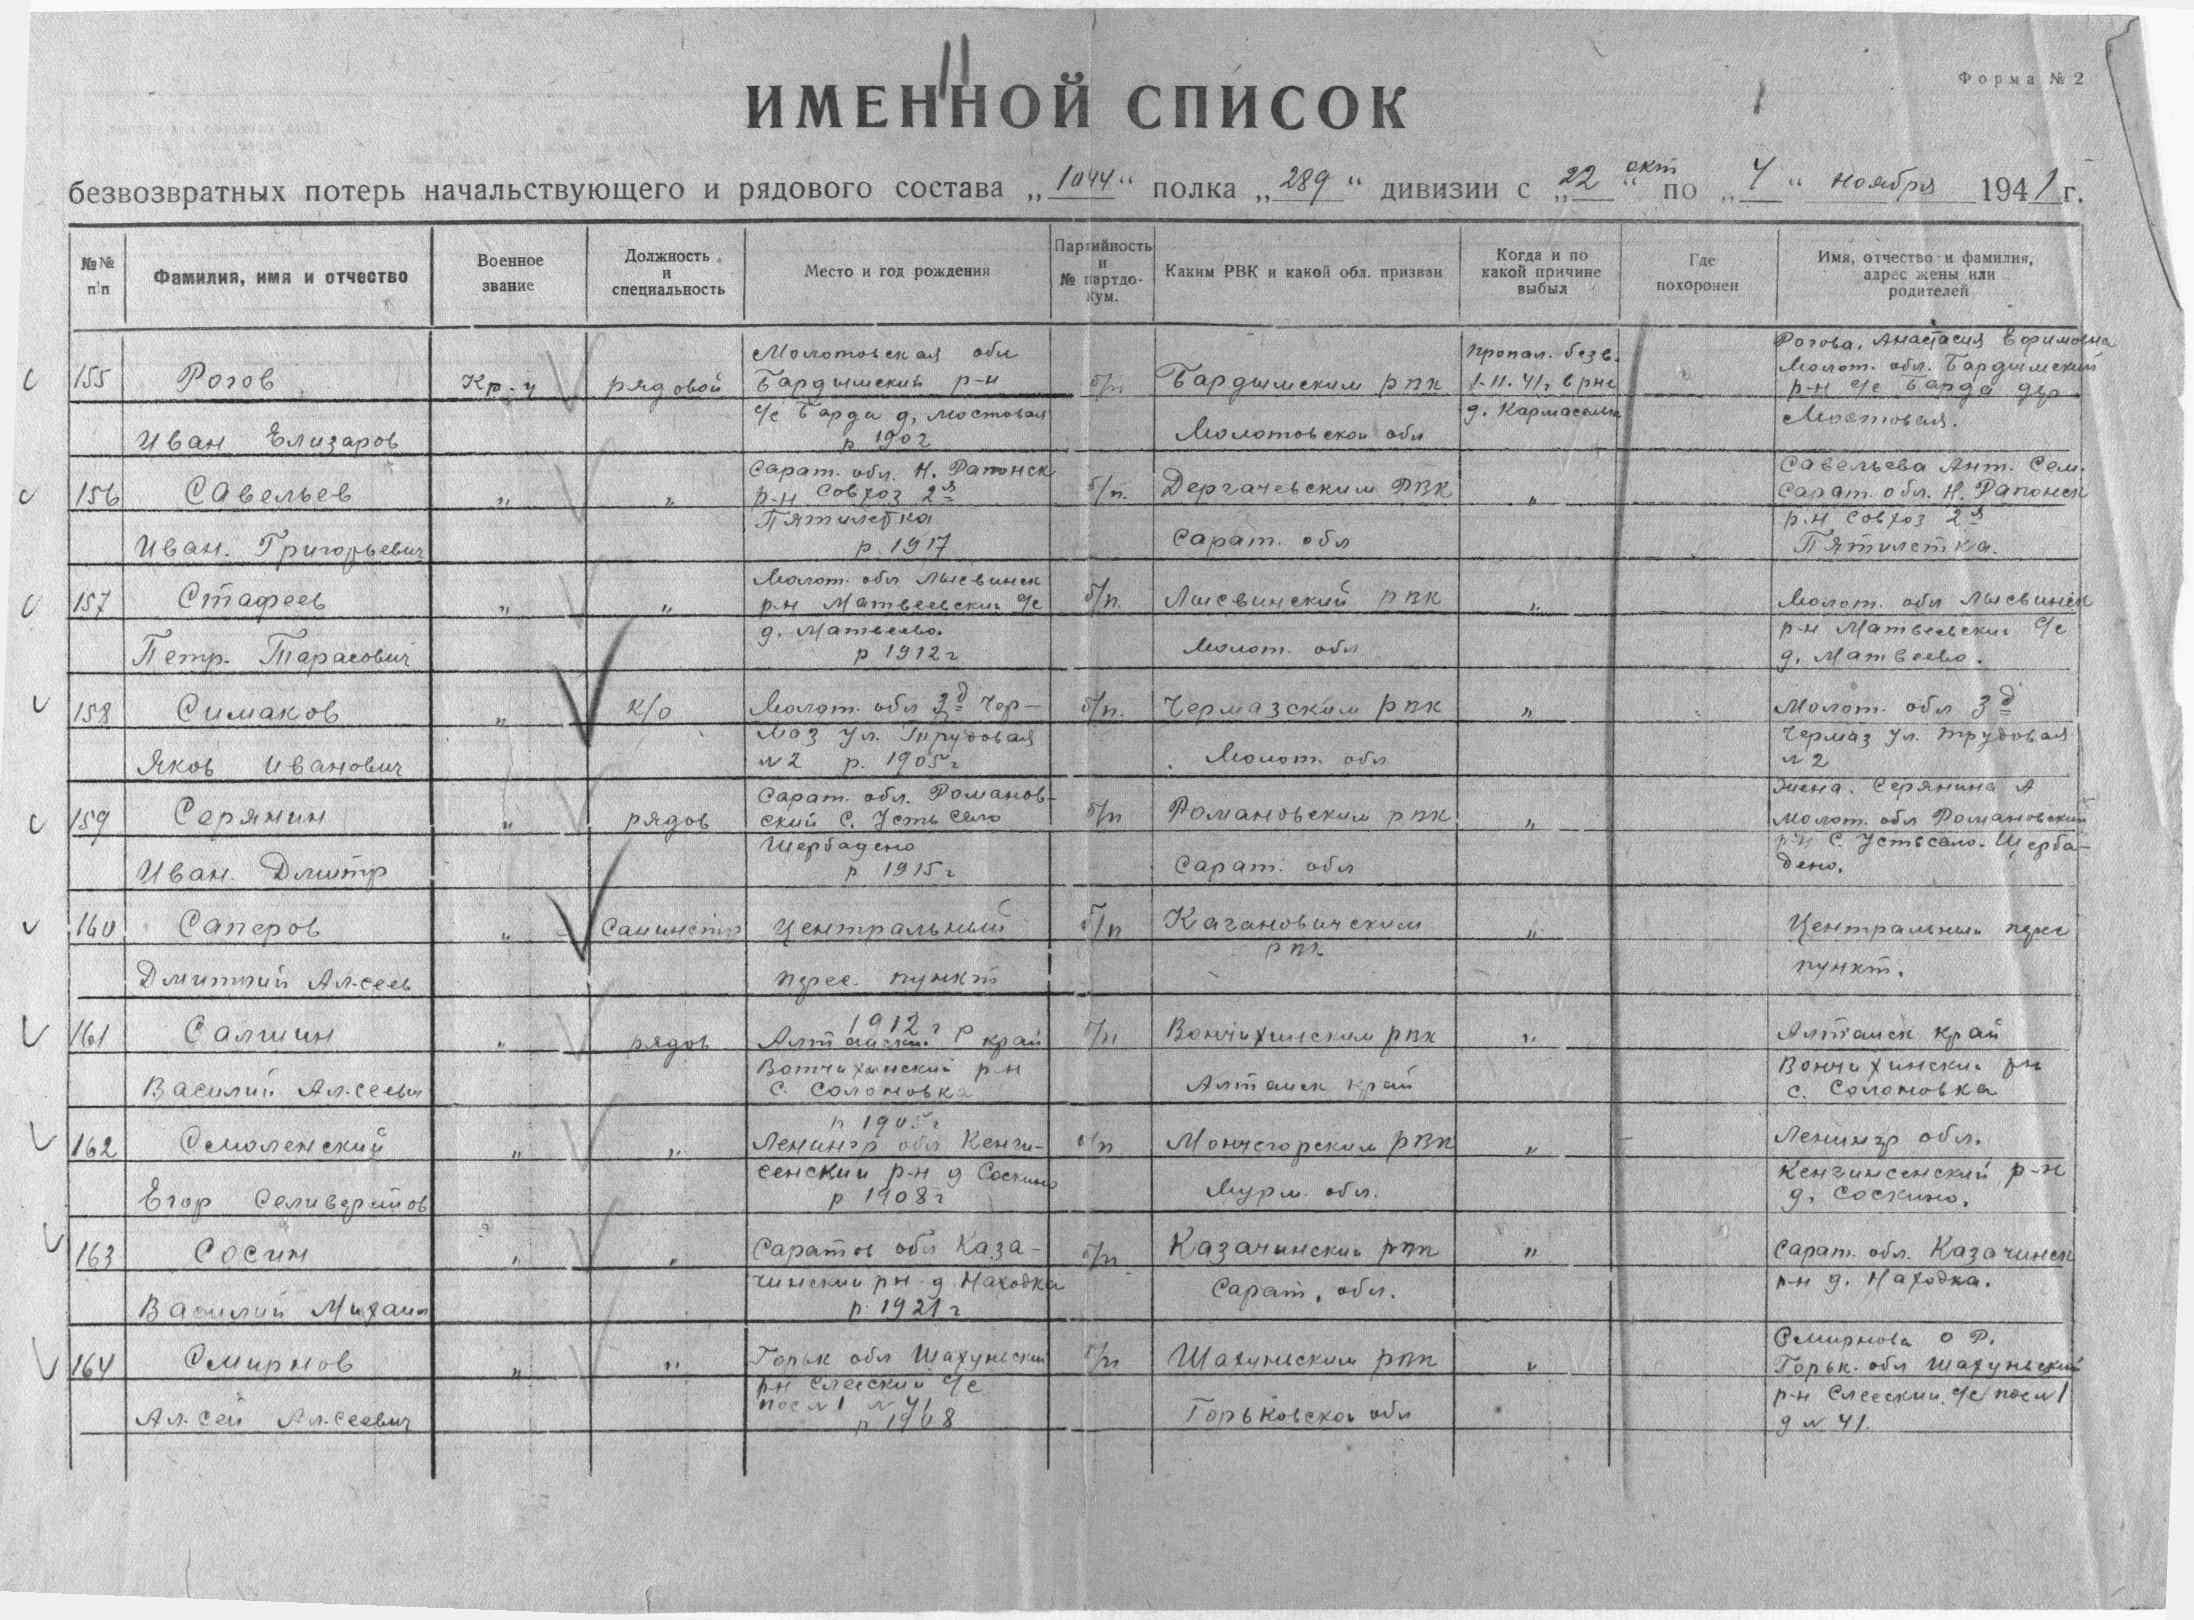 Форма № 2
ИМЕННОЙ СПИСОК
безвозвратных потерь начальствующего и рядового состава „1044“ полка „289“ дивизии с „22“ окт по „4“ ноября 1941 г.
№№ п/п
Фамилия, имя и отчество
Военное звание
Должность и специальность
Место и год рождения
Партийность и № партдокум.
Каким РВК и какой обл. призван
Когда и по какой причине выбыл
Где похоронен
Имя, отчество и фамилия, адрес жены или родителей
155
Рогов
Иван Елизаров
Кр-ц
рядовой
Молотовская обл
Бардымский р-н
с/с Барда д. Мостовая
р 1902
б/п
Бардымским РВК
Молотовской обл
пропал. безв.
1-11.41г в рне
д. Кармасельга
Рогова. Анастасия Ефимовна
Молот. обл. Бардымский
р-н с/с Барда дер
Мостовая.
156
Савельев
Иван. Григорьевич
„
„
Сарат. обл. Н. Рапонск
р-н Совхоз 2я
Пятилетка
р. 1917
б/п.
Дергачевским РВК
Сарат. обл
„
Савельева Ант. Сем.
Сарат. обл. Н. Рапонск
р-н Совхоз 2я
Пятилетка.
157
Стафеев
Петр. Тарасович
„
„
Молот. обл Лысвинск
р-н Матвеевский с/с
д. Матвеево.
р 1912г
б/п.
Лысвинский РВК
Молот. обл
„
Молот. обл Лысвинск
р-н Матвеевский с/с
д. Матвеево.
158
Симаков
Яков Иванович
„
к/о
Молот. обл 3д Чер-
маз ул. Трудовая
№2 р. 1905г
б/п.
Чермазским РВК
Молот. обл
„
Молот. обл 3д
Чермаз ул. Трудовая
№ 2
159
Серянин
Иван. Дмитр
„
рядов
Сарат. обл. Романов-
ский С. Усть село
Щербадено
р 1915г
б/п
Романовским РВК
Сарат. обл
„
Жена. Серянина А
Молот. обл Романовский
р-н С. Устьсело. Щерба-
дено.
160
Саперов
Дмитрий Ал-сеев
„
Санинстр
Центральный
перес. пункт
б/п
Кагановичским
РВК
„
Центральный перес
пункт.
161
Салмин
Василий Ал-сеевич
„
рядов
1912г р
Алтайский край
Вотчихинский р-н
С. Солоновка
б/п
Вончихинским РВК
Алтайск край
„
Алтайск край
Вончихинский рн
с. Солоновка
162
Смоленский
Егор Селиверстов
„
„
р 1905г
Ленингр обл Кенги-
сенский р-н д Соскино
р 1908г
б/п
Мончегорским РВК
Мурм. обл.
„
Ленингр обл.
Кенгинсенский р-н
д. Соскино.
163
Сосин
Василий Михаил
„
„
Саратов обл Каза-
чинский рн д Находка
р. 1921г
б/п
Казачинский РВК
Сарат. обл.
„
Сарат. обл. Казачинск
р-н д. Находка.
164
Смирнов
Ал-сей Ал-сеевич
„
„
Горьк обл Шахунский
р-н с/с
пос №1 № 41
р 1908
б/п
Шахунским РВК
Горьковской обл
„
Смирнова О Р.
Горьк. обл Шахунский
р-н с/с пос №1
д № 41.